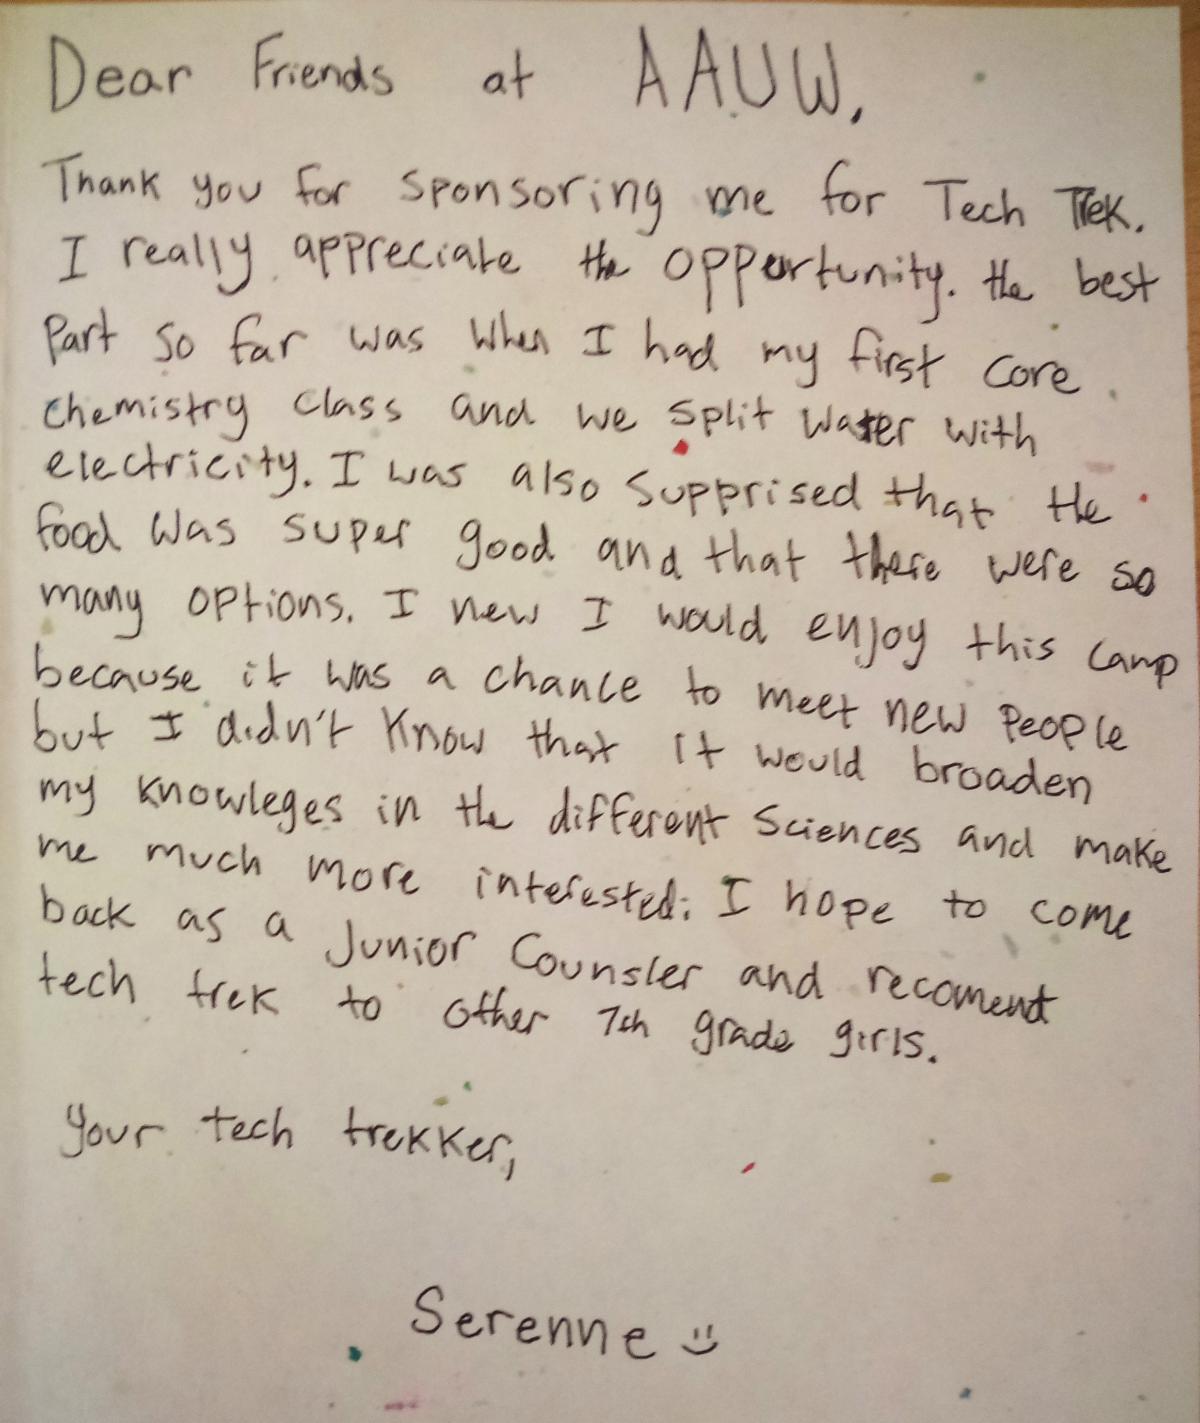 Dear Friends at AAUW,
Thank you for sponsoring me for Tech Trek.
I really appreciate the opportunity. the best
Part so far was when I had my first core
chemistry class and we split water with
electricity. I was also supprised that the
food was super good and that there were so
many options. I new I would enjoy this camp
because it was a chance to meet new people
but I didn't know that it would broaden
my knowleges in the different sciences and make
me much more interested. I hope to come
back as a Junior Counsler and recoment
tech trek to other 7th grade girls.
Your tech trekker,
Serenne :)